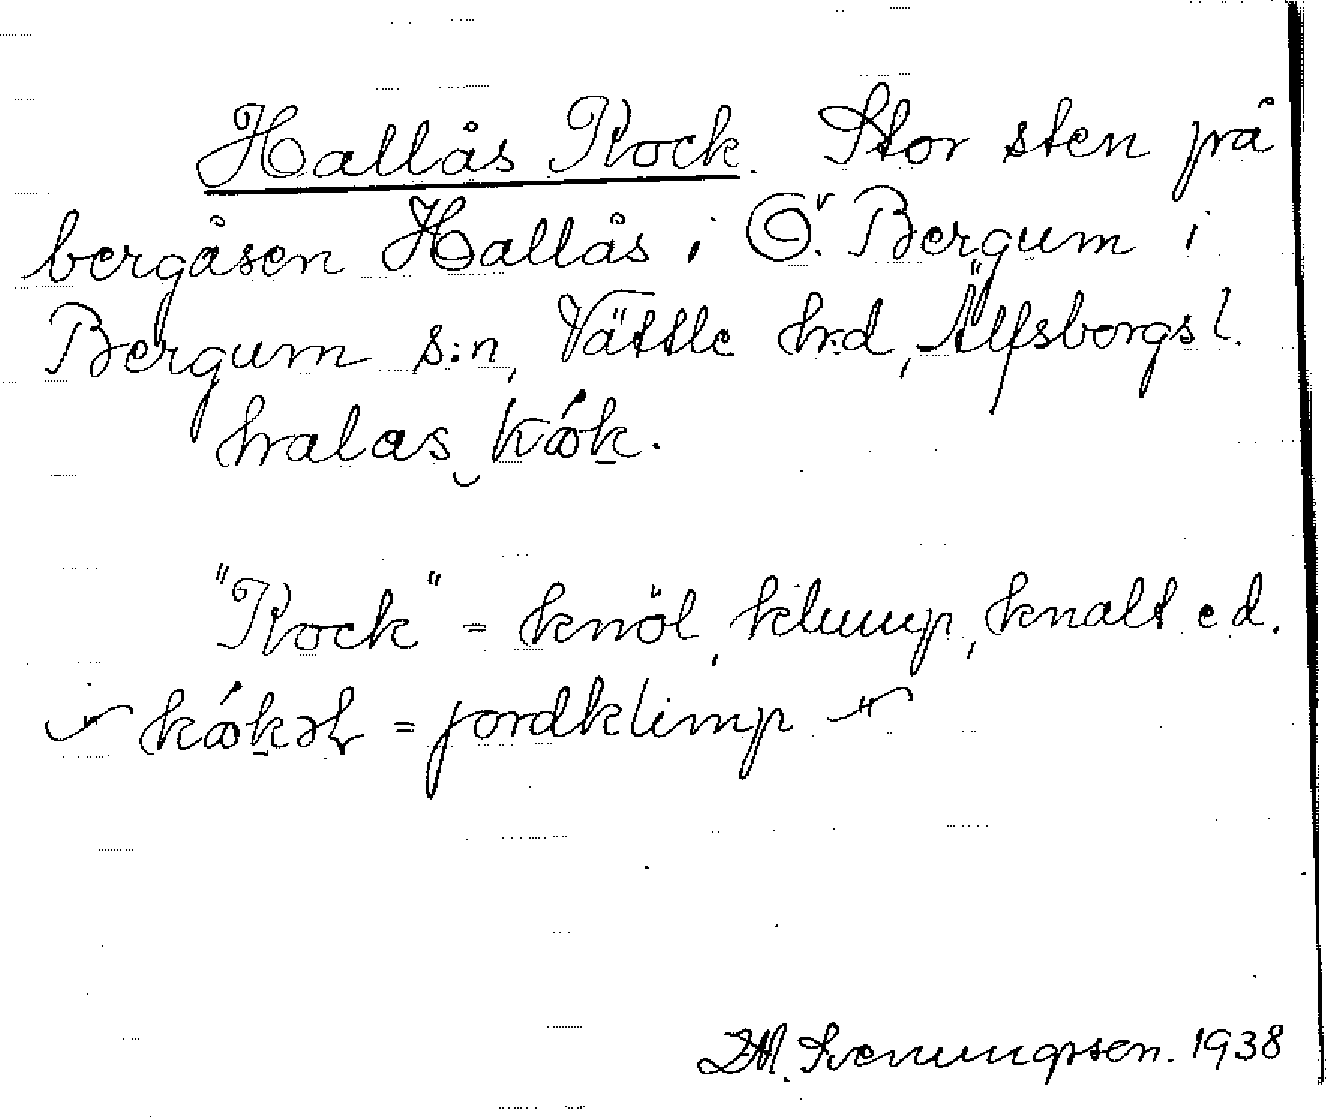 Hallås Kock. Stor sten på
bergåsen Hallås i Ö. Bergum i
Bergum s:n, Vättle hrd, Älfsborgs l.
halas kók.
"Kock" = knöl, klump, knalt e d.
" kókəl = jordklimp "
Svenungsson. 1938